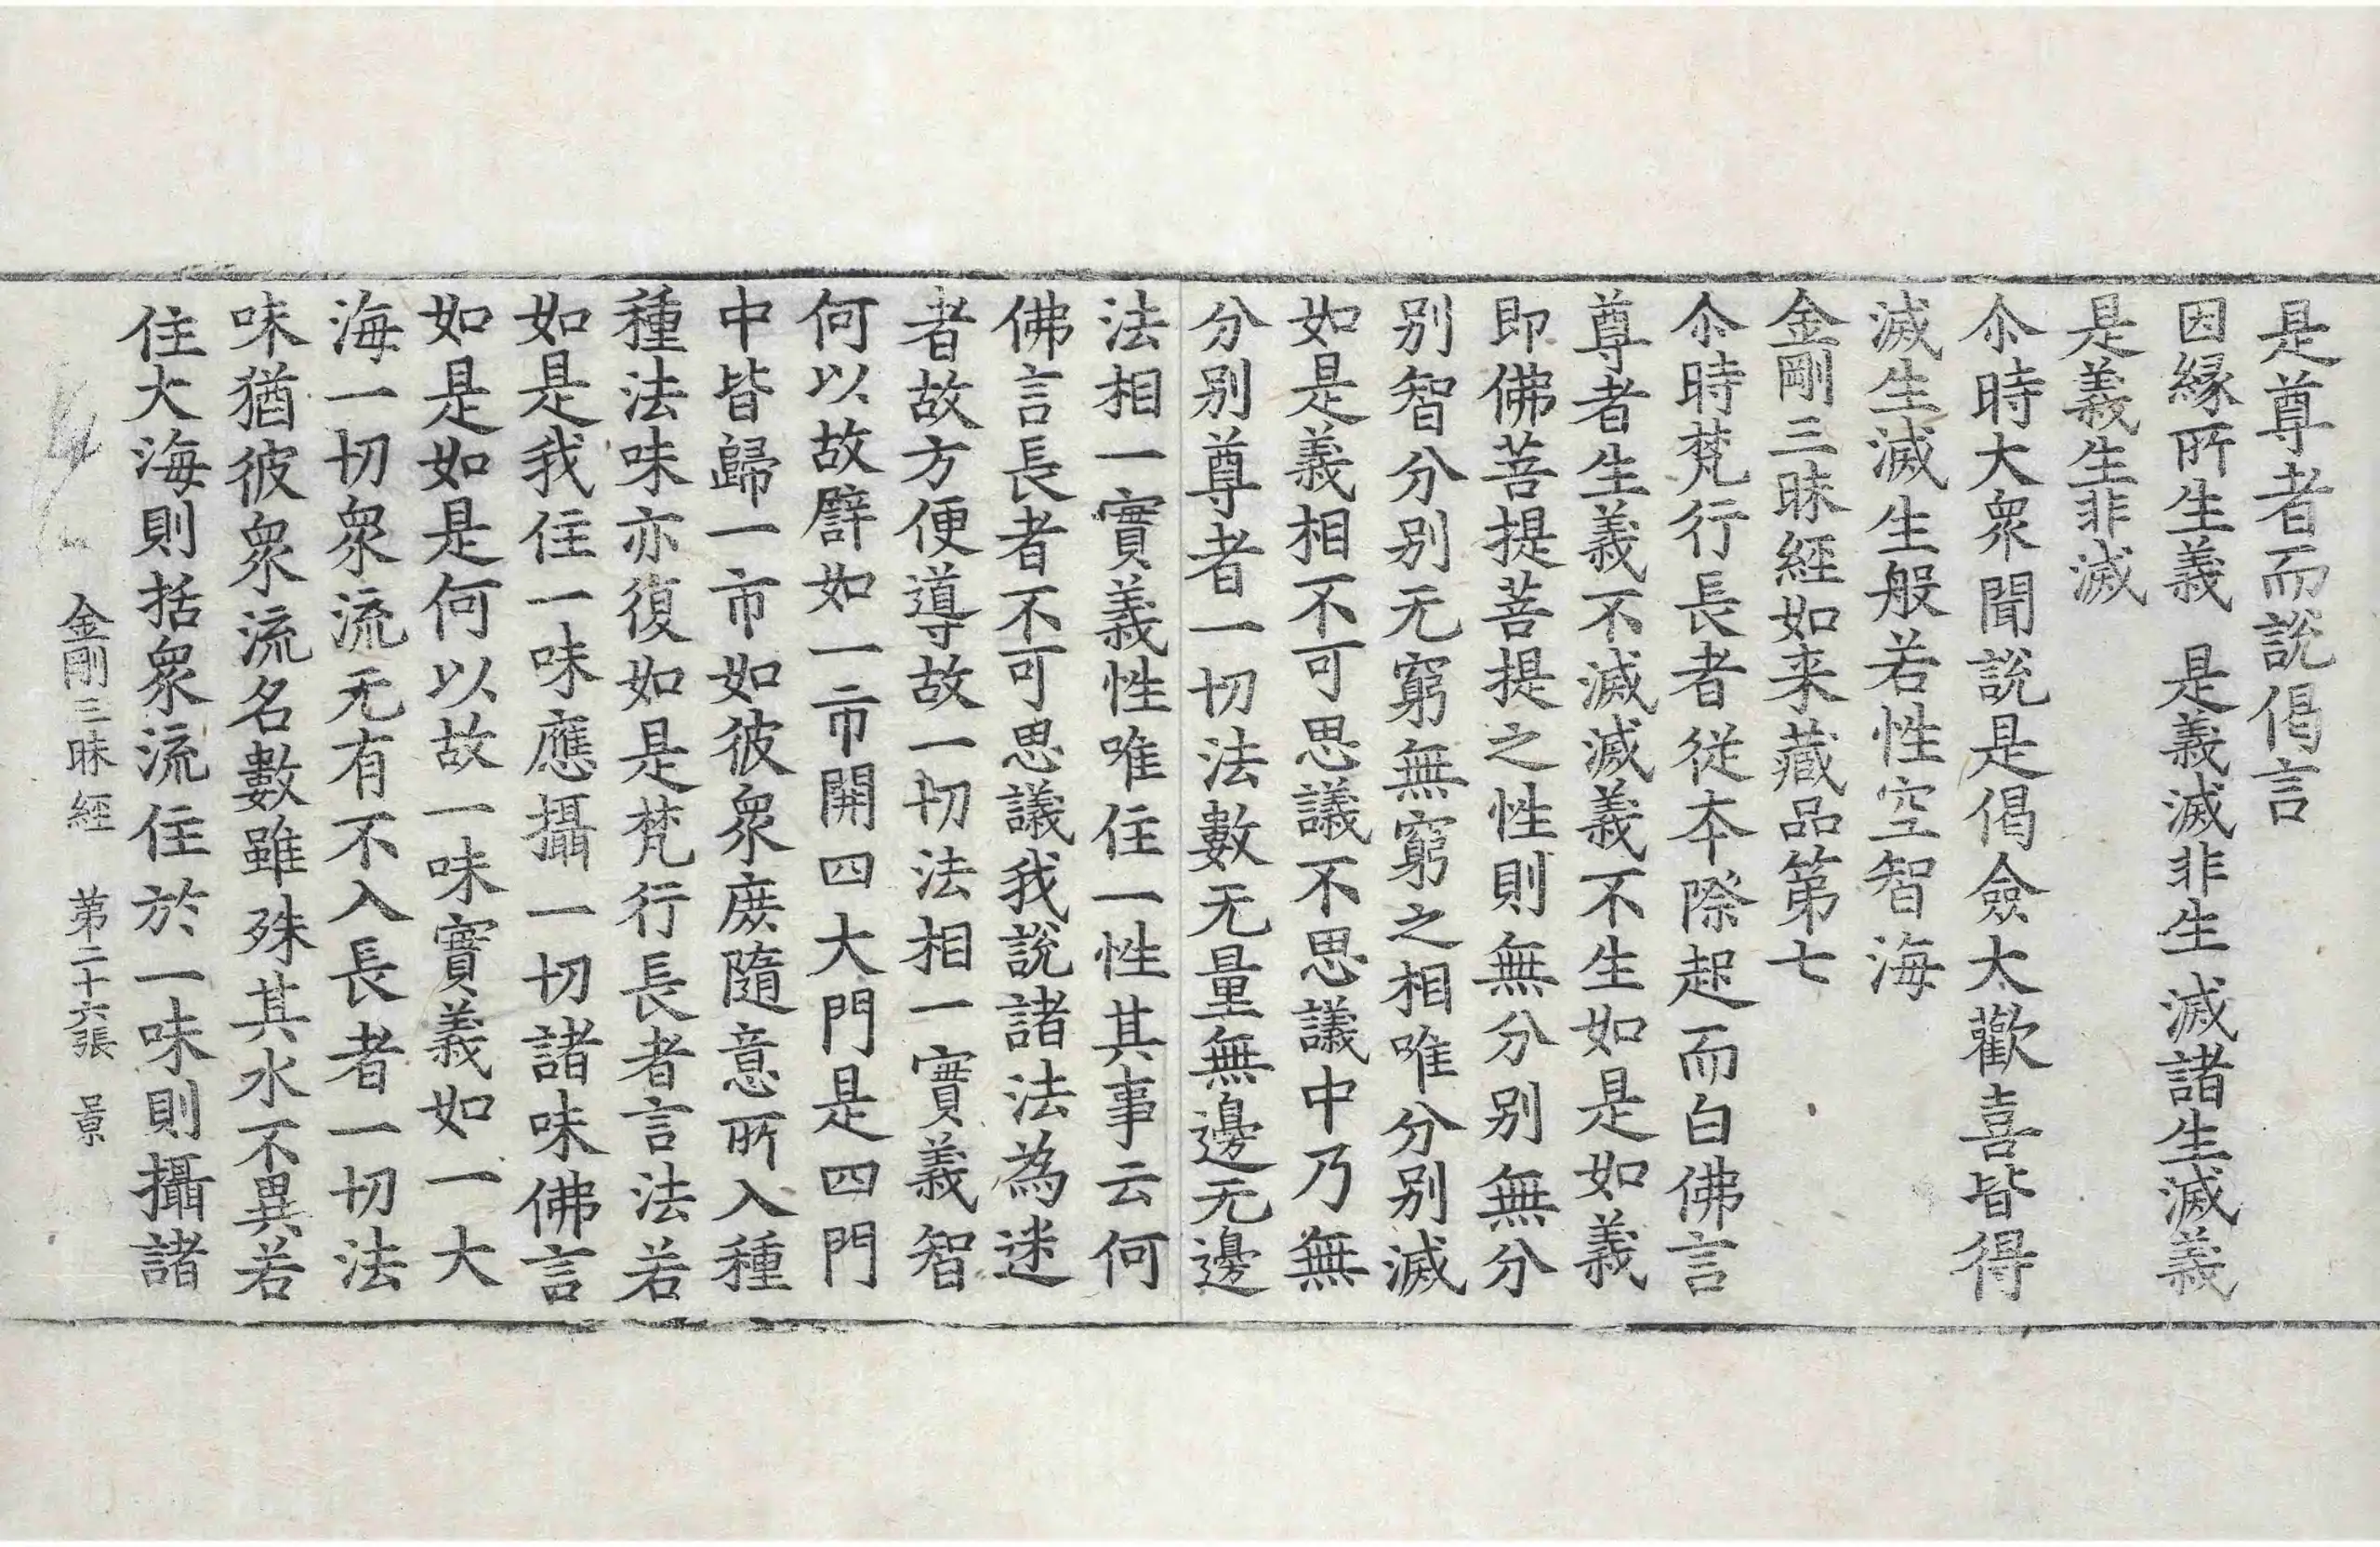 是尊者而說偈言
因縁所生義　是義滅非生　滅諸生滅義
是義生非滅
尒時大衆聞說是偈僉大歡喜皆得
滅生滅生般若性空智海
金剛三昧經如来藏品第七
尒時梵行長者從本際起而白佛言
尊者生義不滅滅義不生如是如義
即佛菩提菩提之性則無分别無分
别智分别无窮無窮之相唯分别滅
如是義相不可思議不思議中乃無
分别尊者一切法數无量無邊无邊
法相一實義性唯住一性其事云何
佛言長者不可思議我說諸法為迷
者故方便導故一切法相一實義智
何以故譬如一市開四大門是四門
中皆歸一市如彼衆庶隨意所入種
種法味亦復如是梵行長者言法若
如是我住一味應攝一切諸味佛言
如是如是何以故一味實義如一大
海一切衆流无有不入長者一切法
味猶彼衆流名數雖殊其水不異若
住大海則括衆流住於一味則攝諸
金剛三昧經　第二十六張　景